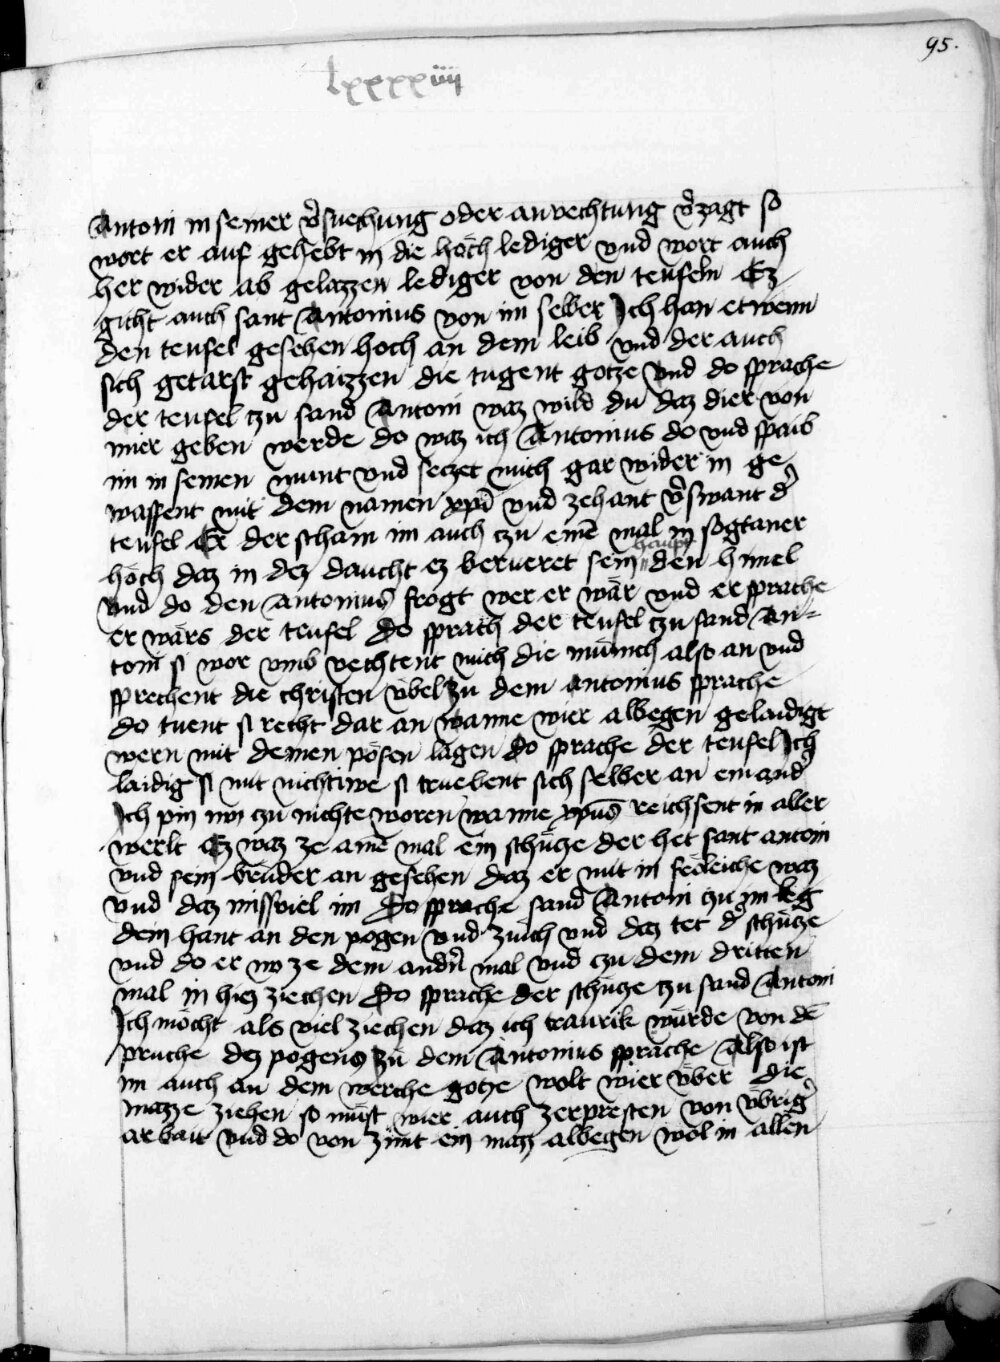 95.
lxxxxiiij
Antoni in seiner v̉suechung oder anvechtung v̉zagt so
wort er auf gehebt in die höch lediger vnd wort auch
her wider ab gelazzen lediger von den teufeln Ez
gicht auch sant Antonius von im selber Ich han etwenn
den teufel gesehen hoch an dem leib vnd der auch
sich getarst gehaizzen die tugent gotze vnd do sprache
der teufel tzu sand Antoni waz wild du daz dier von
mier geben werde do waz ich Antonius do vnd spaib
im in seinen munt vnd seczet mich gar wider in ge
waffent mit dem namen xp̄i vnd zehant v̉swant d̉
teufel Er̄ der scham im auch tzu einē mal in sogtaner
höch daz in dez daucht ez berueret sein haupt den himel
vnd do den Antonius frogt wer er wär vnd er sprache
er wärs der teufel Do sprach der teufel tzu sand An-
toni si wor vmb vechtent mich die münich also an vnd
sprechent die christen v̈bel zu dem antonius sprache
do tuent si recht dar an wanne wier albegen gelaidigt
wern mit deinen pösen lagen do sprache der teufel Ich
laidig si mit nichtiwe si truebent sich selber an ein and̉
Ich pin nw tzu nichte woren wanne xp̄us reichsent in aller
werlt Ez waz ze ainē mal ein schütze der het sant antoni
vnd sein brüder an gesehen daz er mit in fröleiche waz
vnd daz missviel im Do sprache sand Antoni tzu im leg
dein hant an den pogen vnd zuich vnd daz tet d̉ schütze
vnd do er in ze dem andn̉ mal vnd tzu dem dritten
mal in hiez ziechen Do sprache der schütze tzu sand Antoni
Ich möcht als viel ziechen daz ich traurik würde von dē
pruche dez pogens zü dem Antonius sprache Also ist
im auch an dem werche gotze wolt wier v̈ber die
mazze ziehen so müst wier auch zerpresten von v̈brig̉
arbait vnd do von zimt ein mazz albegen wol in allen